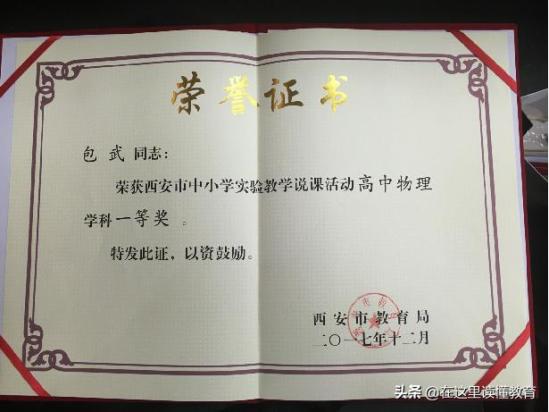 荣誉证书
包武 同志：
荣获西安市中小学实验教学说课活动高中物理
学科一等奖 。
特发此证，以资鼓励。
西安市教育局
二〇一七年十二月
头条 @在这里读懂教育